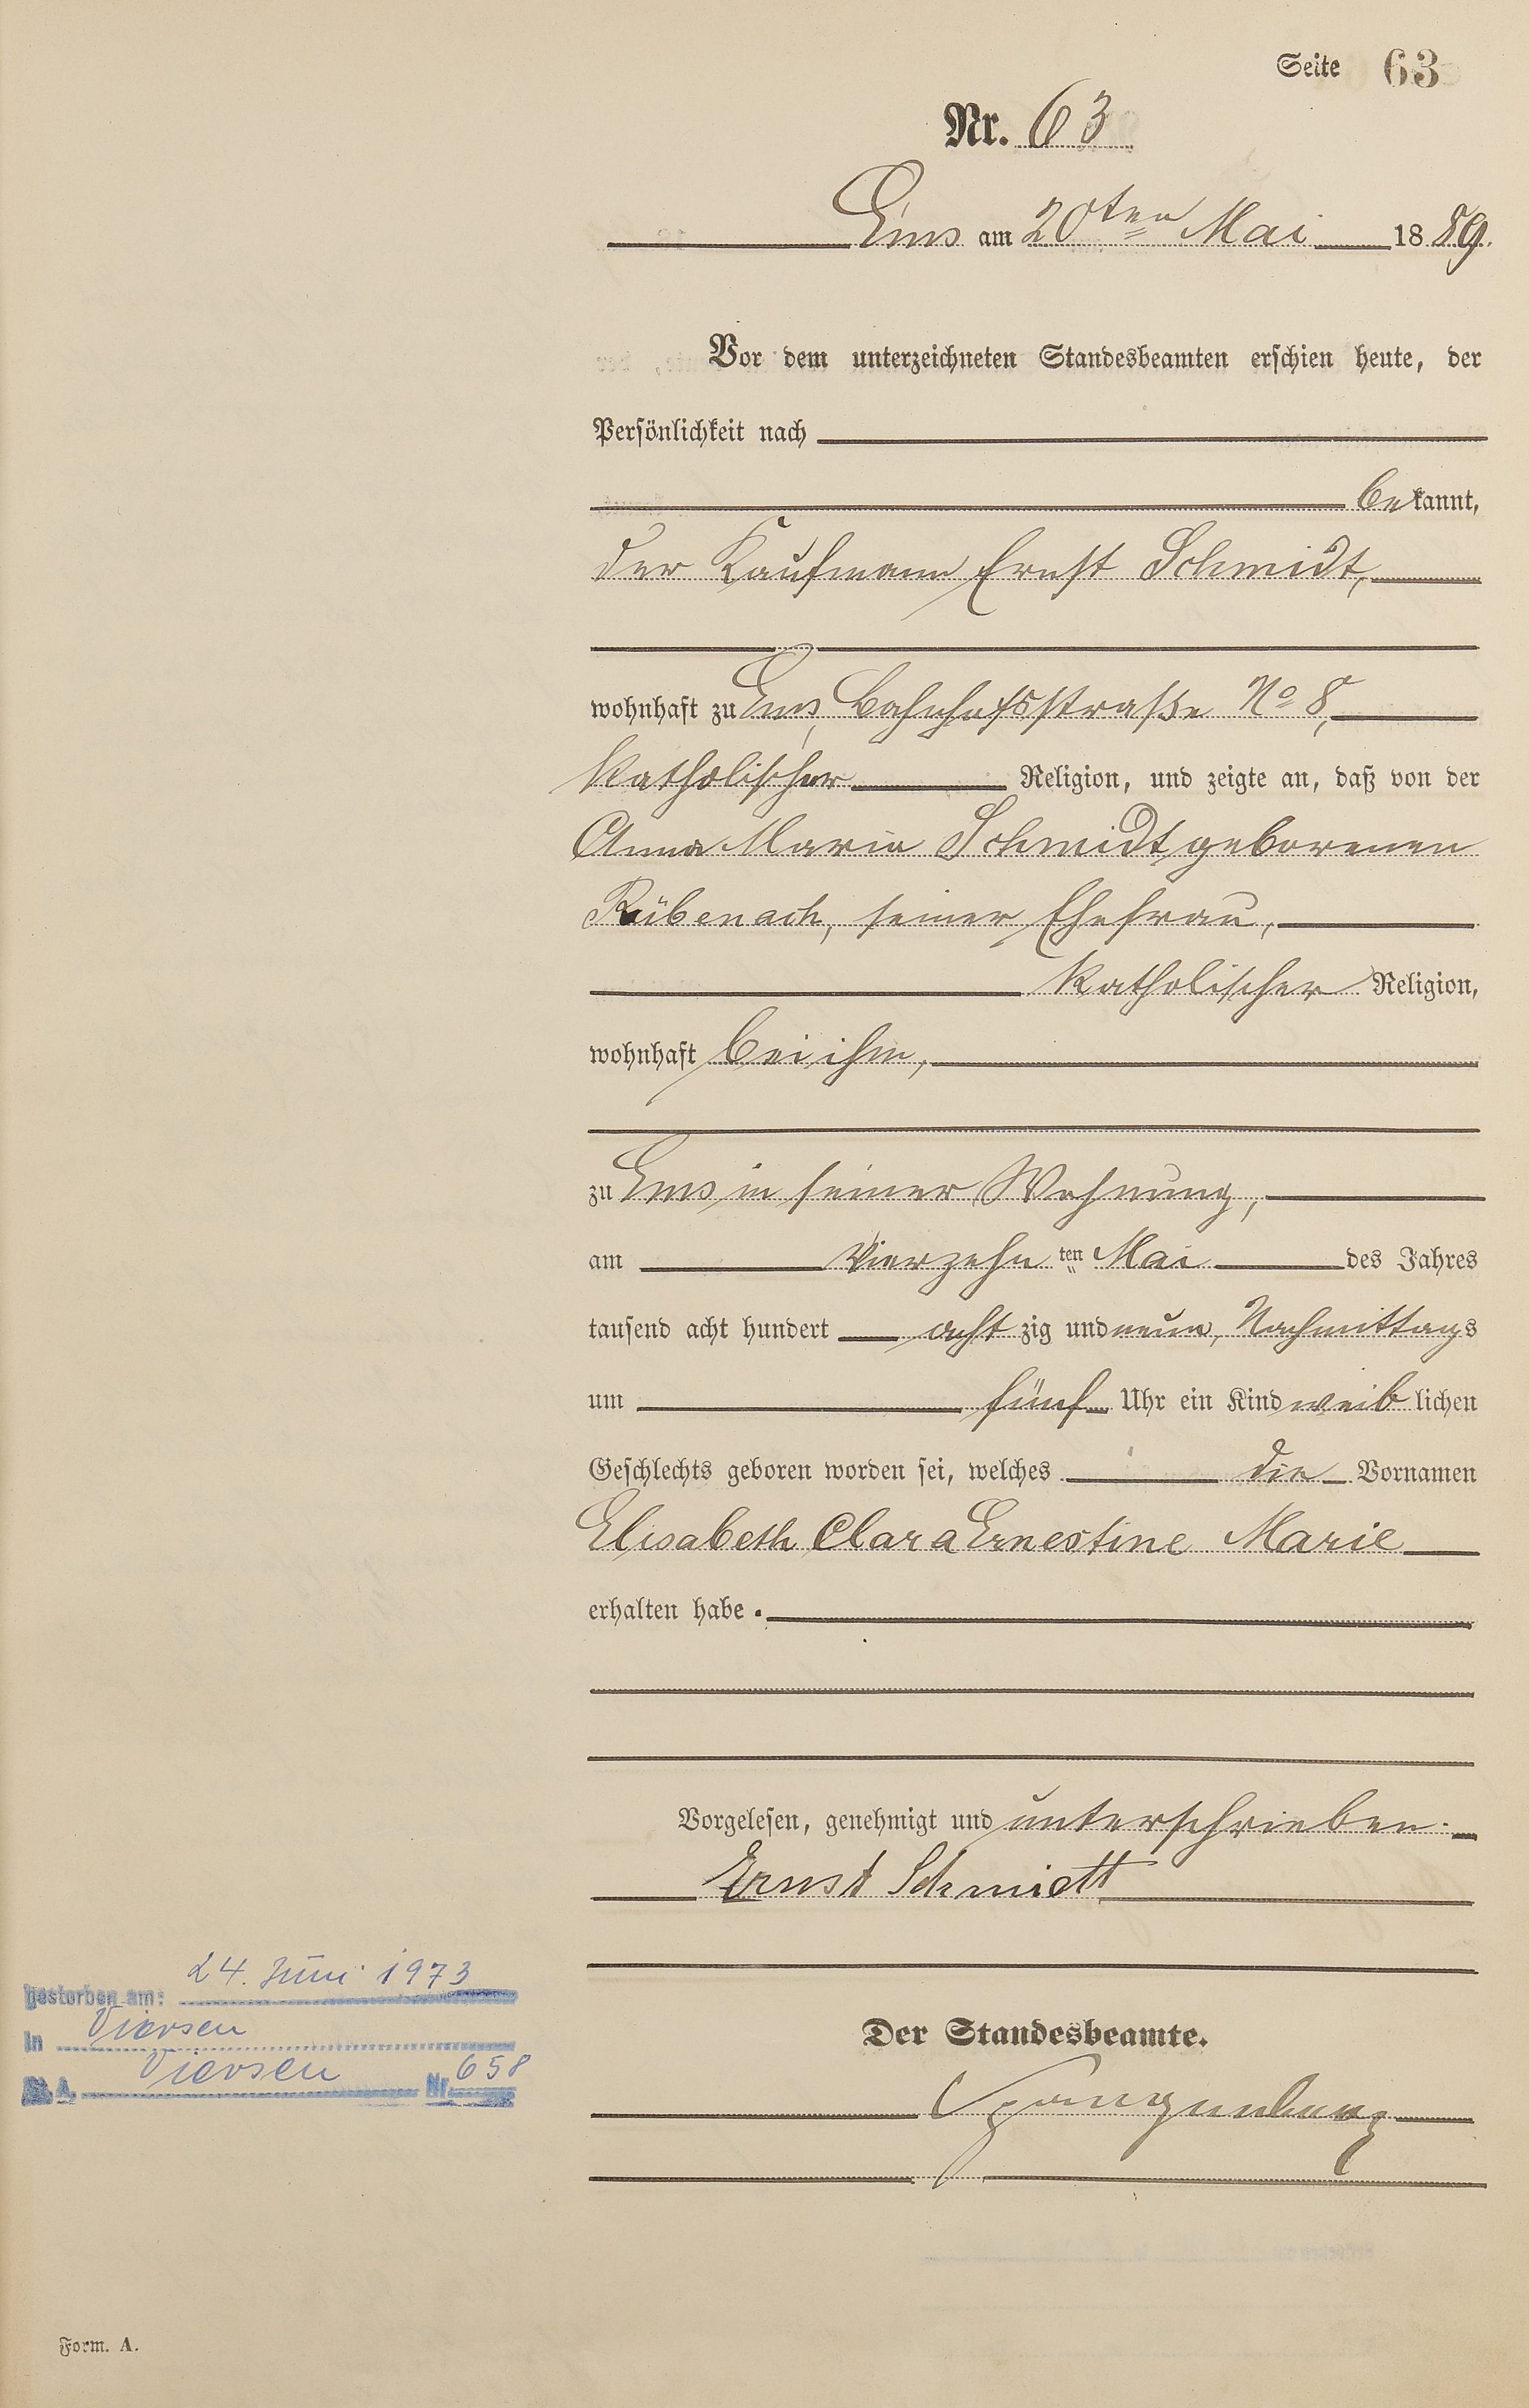 Seite 63
Nr. 63
Ems am 20ten Mai 1889.
Vor dem unterzeichneten Standesbeamten erschien heute, der
Persönlichkeit nach
bekannt,
der Kaufmann Ernst Schmidt,
wohnhaft zu Ems, Bahnhofsstraße No 8,
katholischer Religion, und zeigte an, daß von der
Anna Maria Schmidt geborenen
Rübenach, seiner Ehefrau,
katholischer Religion,
wohnhaft bei ihm,
zu Ems in seiner Wohnung,
am vierzehnten Mai des Jahres
tausend acht hundert achtzig und neun, Nachmittags
um fünf Uhr ein Kind weiblichen
Geschlechts geboren worden sei, welches die Vornamen
Elisabeth Clara Ernestine Marie
erhalten habe.
Vorgelesen, genehmigt und unterschrieben.
Ernst Schmidt
Der Standesbeamte.
Spangenberg
gestorben am: 24. Juni 1973
in Viersen
St. A. Viersen Nr. 658
Form. A.